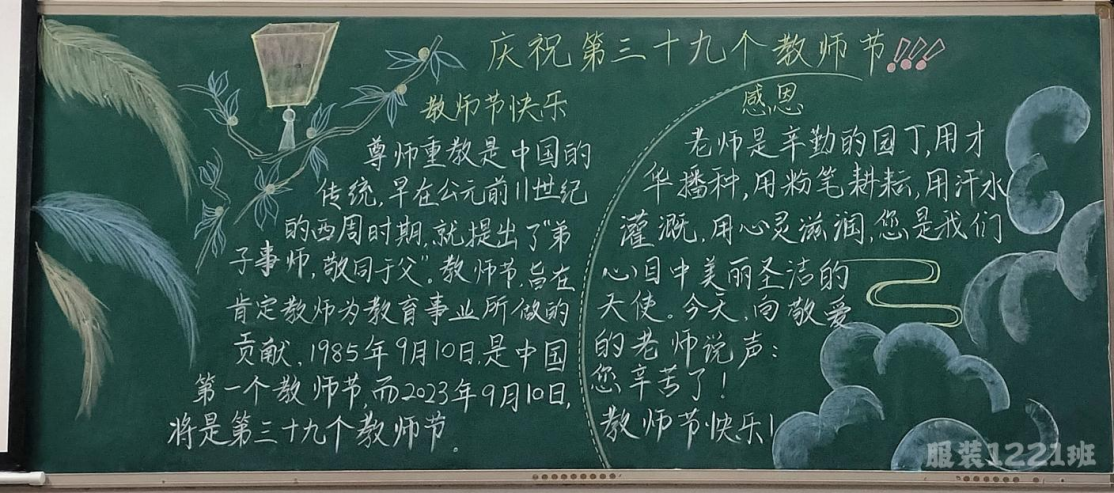 庆祝第三十九个教师节!!!
教师节快乐
尊师重教是中国的
传统,早在公元前11世纪
的西周时期,就提出了"弟
子事师,敬同于父"。教师节,旨在
肯定教师为教育事业所做的
贡献,1985年9月10日,是中国
第一个教师节,而2023年9月10日,
将是第三十九个教师节。
感恩
老师是辛勤的园丁,用才
华播种,用粉笔耕耘,用汗水
灌溉,用心灵滋润,您是我们
心目中美丽圣洁的
天使。今天,向敬爱
的老师说声:
您辛苦了!
教师节快乐!
服装1221班